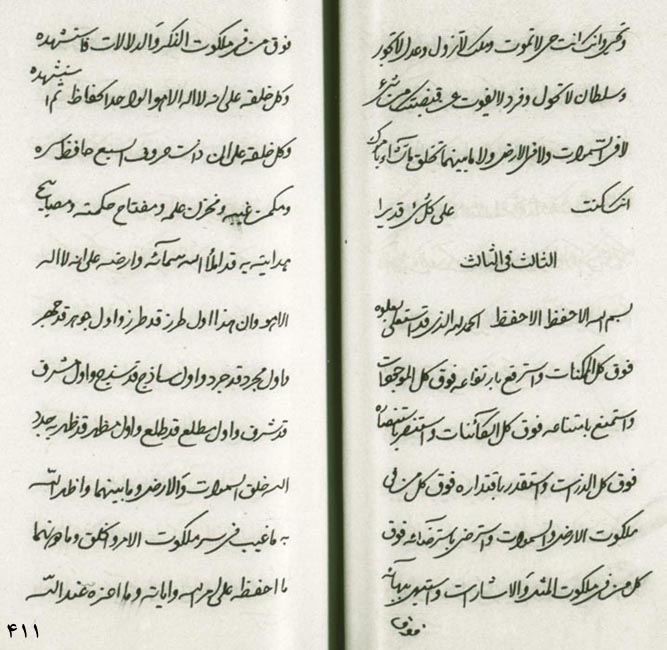 وتحیي وانك انت حي لا تموت وملك لا تزول وعدل لا تجور
وسلطان لا تحول وفرد لا یفوت عن قبضتك من شیء
لا فی السموات ولا فی الارض ولا ما بینهما تخلق ما تشاء بامرك
انك كنت علی كل شیء قدیرا
الثالث فی الثالث
بسم الله الاحفظ الاحفظ الحمد لله الذی قد استعلی بعلوه
فوق كل الممكنات واسترفع بارتفاعه فوق كل الموجودات
واستمنع بامتناعه فوق كل الكائنات
فوق كل الذرات واستقدر باقتداره فوق كل من فی
ملكوت الارض والسموات واسترضی باسترضائه فوق
كل من فی ملكوت المثل والاشارات
فوق من
فوق من فی ملكوت الذكر والدلالات فاستشهده
وكل خلقه علی انه لا اله الا هو الواحد الحفاظ ثم استشهده
وكل خلقه علی ان ذات حروف السبع حافظ سره
ومكمن غیبه ومخزن علمه ومفتاح حكمته ومصابیح
هدایته به قد املأ الله سمائه وارضه علی انه لا اله
الا هو وان هذا اول طرز قد طرز واول جوهر قد جوهر
واول مجرد قد جرد واول ساذج قد سذج واول شرف
قد شرف واول مطلع قد طلع واول مظهر قد ظهر به جدد
الله خلق السموات والارض وما بینهما واظهر الله
به ما غیب فی سر ملكوت الامر والخلق وما دونهما
ما احفظه علی امر الله وایاته وما اعزه عند الله
۴۱۱